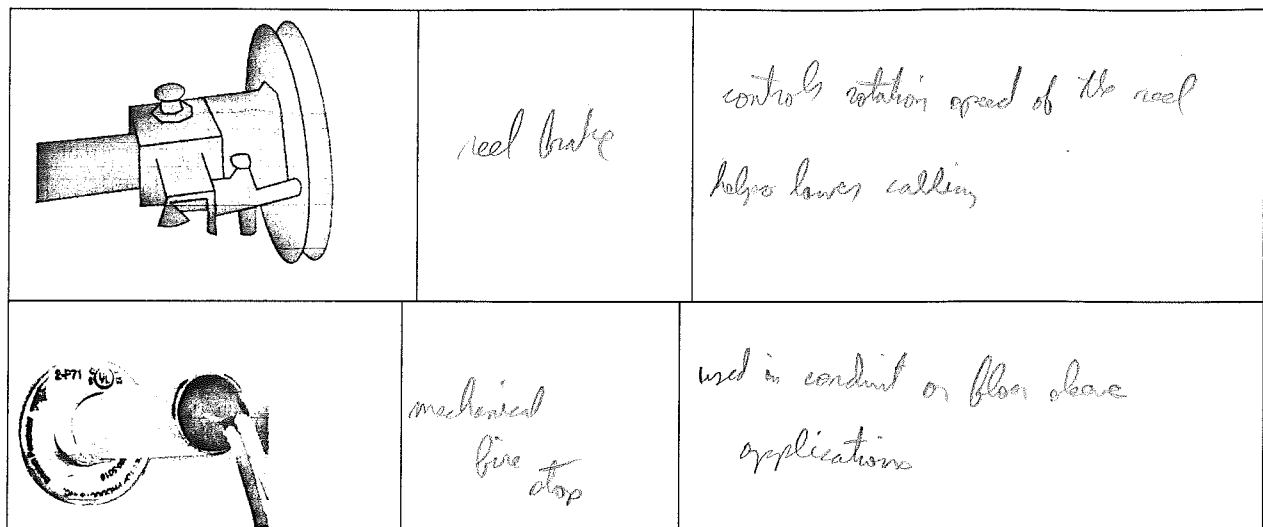 reel brake
controls rotation speed of the reel
helps lower cabling
2-P71
UL
mechanical
fire
stop
used in conduit or floor sleeve
applications